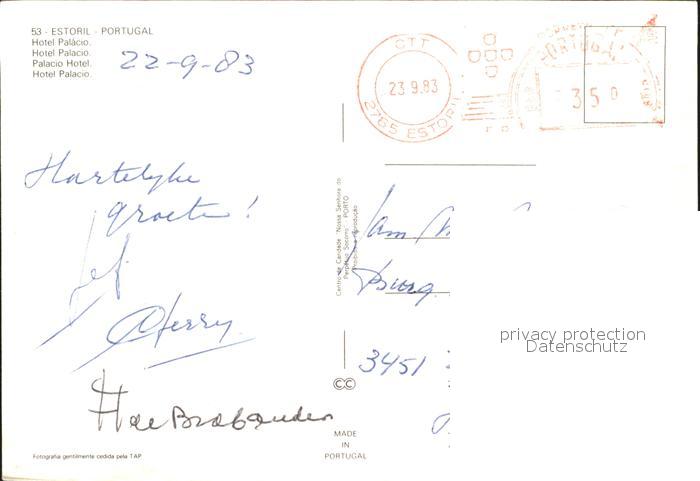 53 - ESTORIL - PORTUGAL
Hotel Palácio.
Hotel Palacio.
Palacio Hotel.
Hotel Palacio.
22-9-83
CTT
23.9.83
2765 ESTORIL
350
Hartelyke
groeten!
Jef
Gerry
H de Brabander
Centro de Caridade "Nossa Senhora do
Perpétuo Socorro" PORTO
3451
privacy protection
Datenschutz
CC
MADE
IN
PORTUGAL
Fotografia gentilmente cedida pela TAP